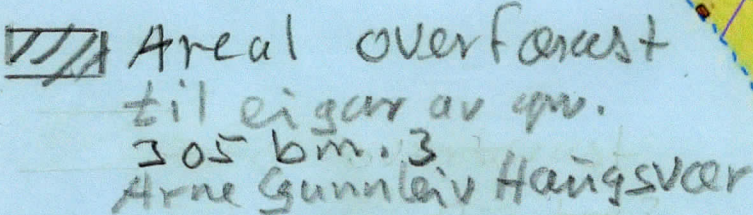 Areal overførast
til eigar av gnr.
305 bnr. 3
Arne Gunnleiv Haugsvær